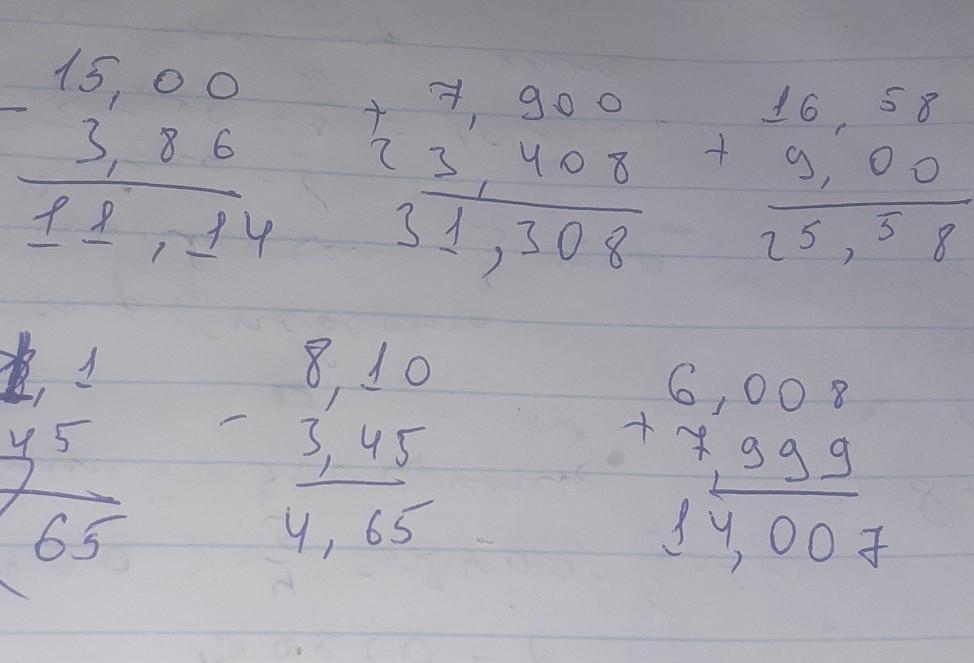 15,00 + 7,900 16,58
- 3,86 23,408 + 9,00
11,14 31,308 25,58
, 1 8,10 6,008
45 - 3,45 + 7,999
65 4,65 14,007